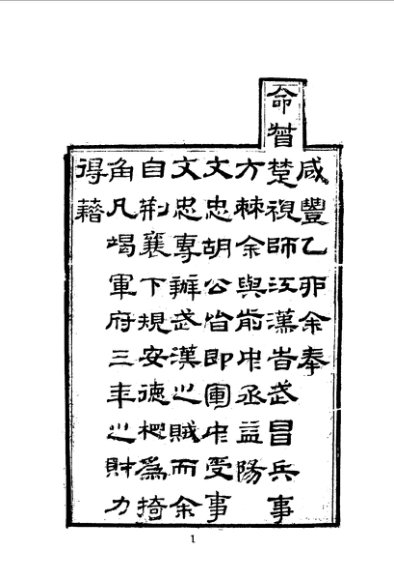 咸豐乙卯余奉
命督楚視師江漢旹武昌兵事
方棘余與前中丞益陽
文忠胡公皆即軍中受事
文忠專辦武漢之賊而余
自荆襄下規安德相為掎
角凡竭軍府三年之財力
得藉
1